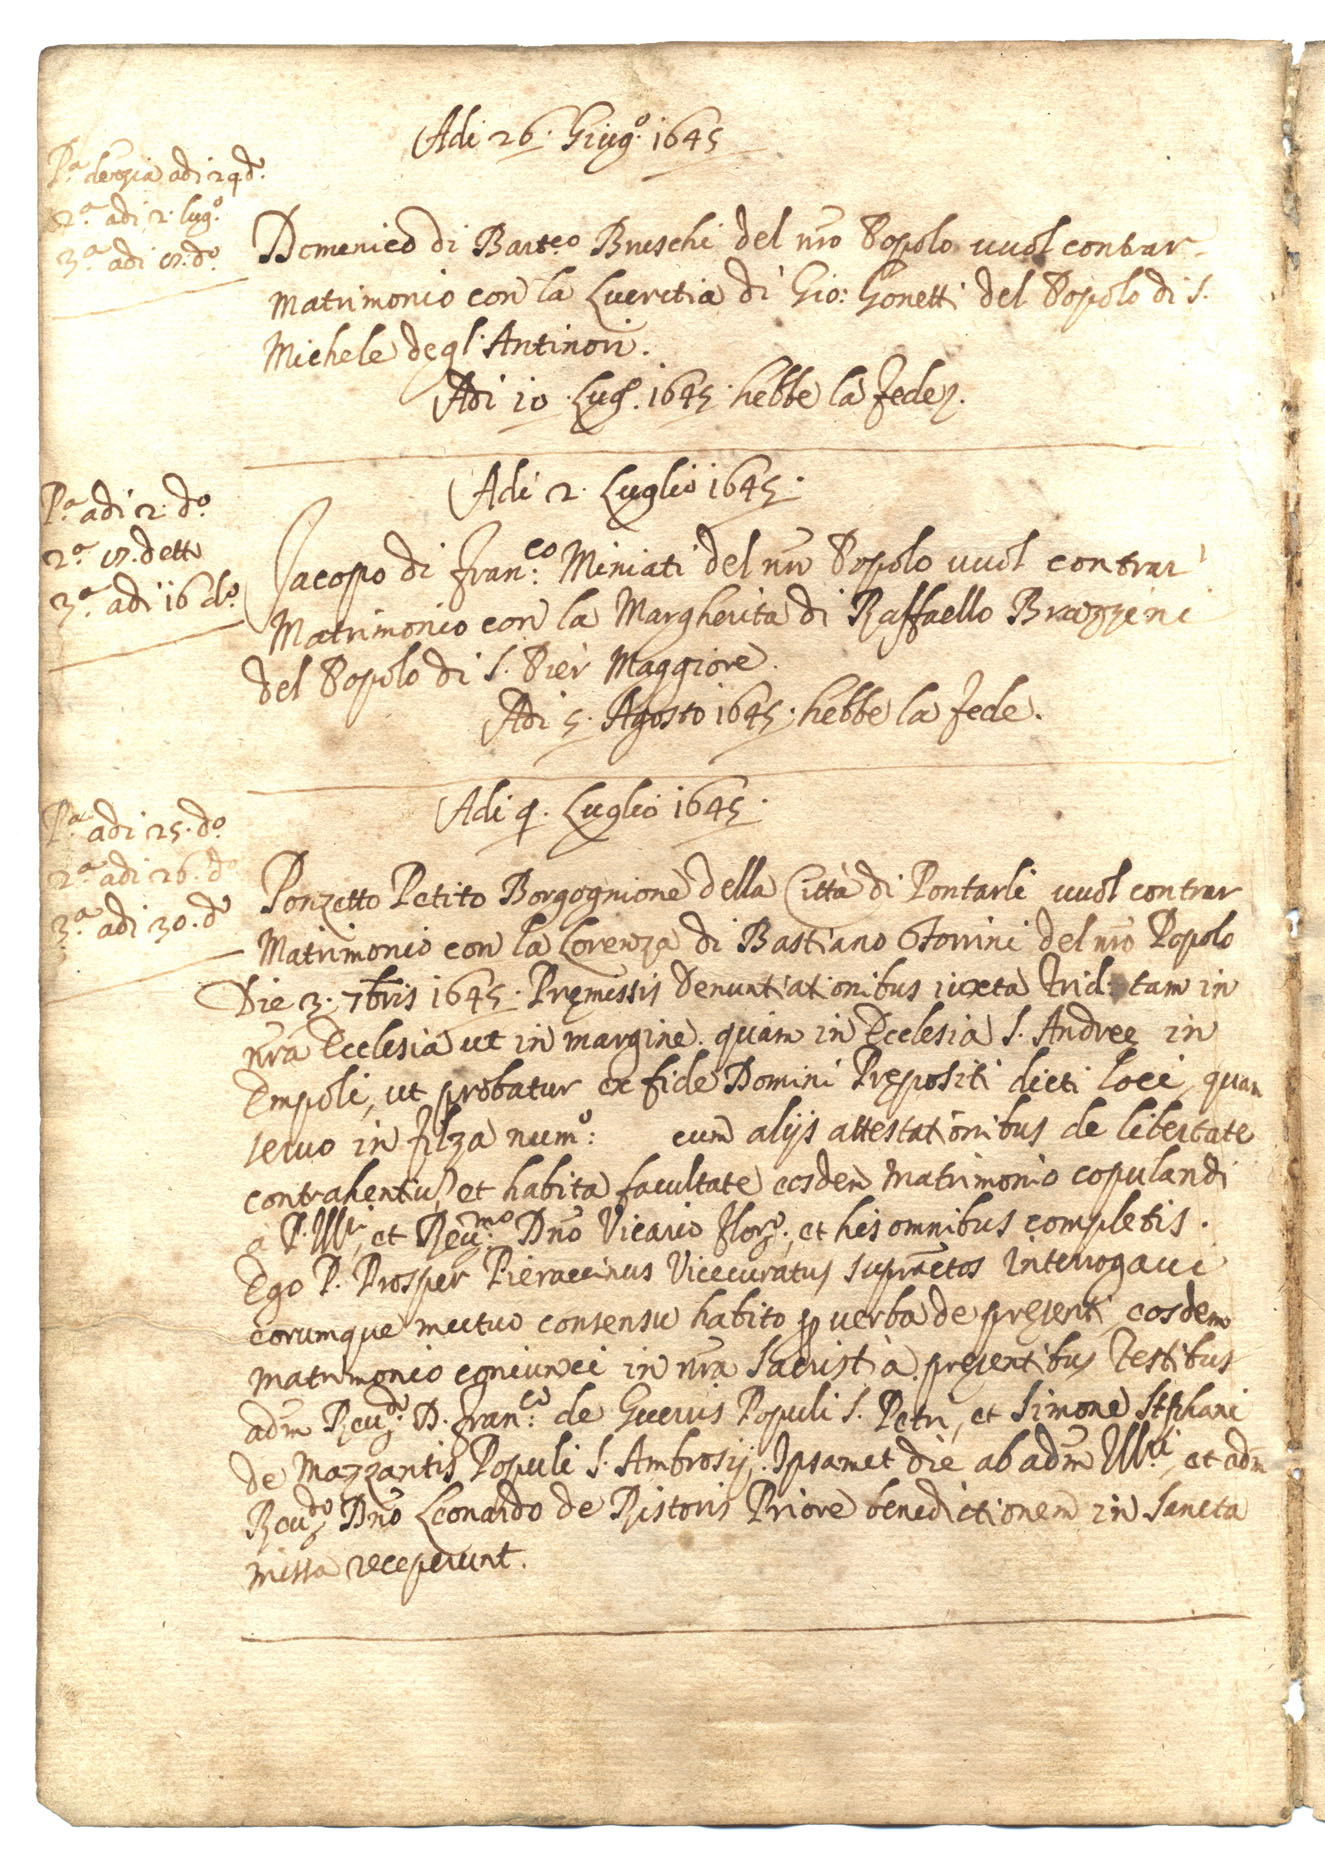 Adi 26. Giug.º 1645
P.ª denzia adi 29 d.º
2.ª adi 2. lug.º
3.ª adi 9. d.º
Domenico di Bart.eo Bueschi del nro Popolo vuol contrar
matrimonio con la Lucretia di Gio: Gonetti del Popolo di S.
Michele degl' Antinori.
Adi 10 Lug. 1645 hebbe la fede.
Adi 2. Luglio 1645.
P.ª adi 2. d.º
2.ª 9. detto
3.ª adi 16 d.º
Jacopo di Fran.co Miniati del nro Popolo vuol contrar
Matrimonio con la Margherita di Raffaello Brazzini
del Popolo di S. Pier Maggiore.
Adi 5. Agosto 1645. hebbe la fede.
Adi 9. Luglio 1645.
P.ª adi 25. d.º
2.ª adi 26. d.º
3.ª adi 30. d.º
Ponzetto Petito Borgognione della Città di Pontarli vuol contrar
Matrimonio con la Lorenza di Bastiano Torrini del nro Popolo
Die 3. 7bris 1645. Premissis Denuntiationibus iuxta Trid: tam in
nra Ecclesia ut in margine. quàm in Ecclesia S. Andree in
Empoli, ut probatur ex fide Domini Prepositi dicti loci, quam
servo in filza num.º: cum alijs attestationibus de libertate
contrahentiũ, et habita facultate eosdem Matrimonio copulandi
à P. Illri, et Reu.mo Dno Vicario flor., et his omnibus completis.
Ego P. Prosper Pieraccinus Vicecuratus supractos interrogavi
eorumque mutuo consensu habito p verba de presenti, eosdem
matrimonio coniunxi in nra Sacristia presentibus Testibus
adm Reu.do D. Fran.co de Guerris Populi S. Petri, et Simone Stphani
de Mazzantis Populi S. Ambrosij. Ipsamet die ab adm Illri, et adm
Reu.do Dno Leonardo de Ristoris Priore benedictionem in Sancta
missa receperunt.